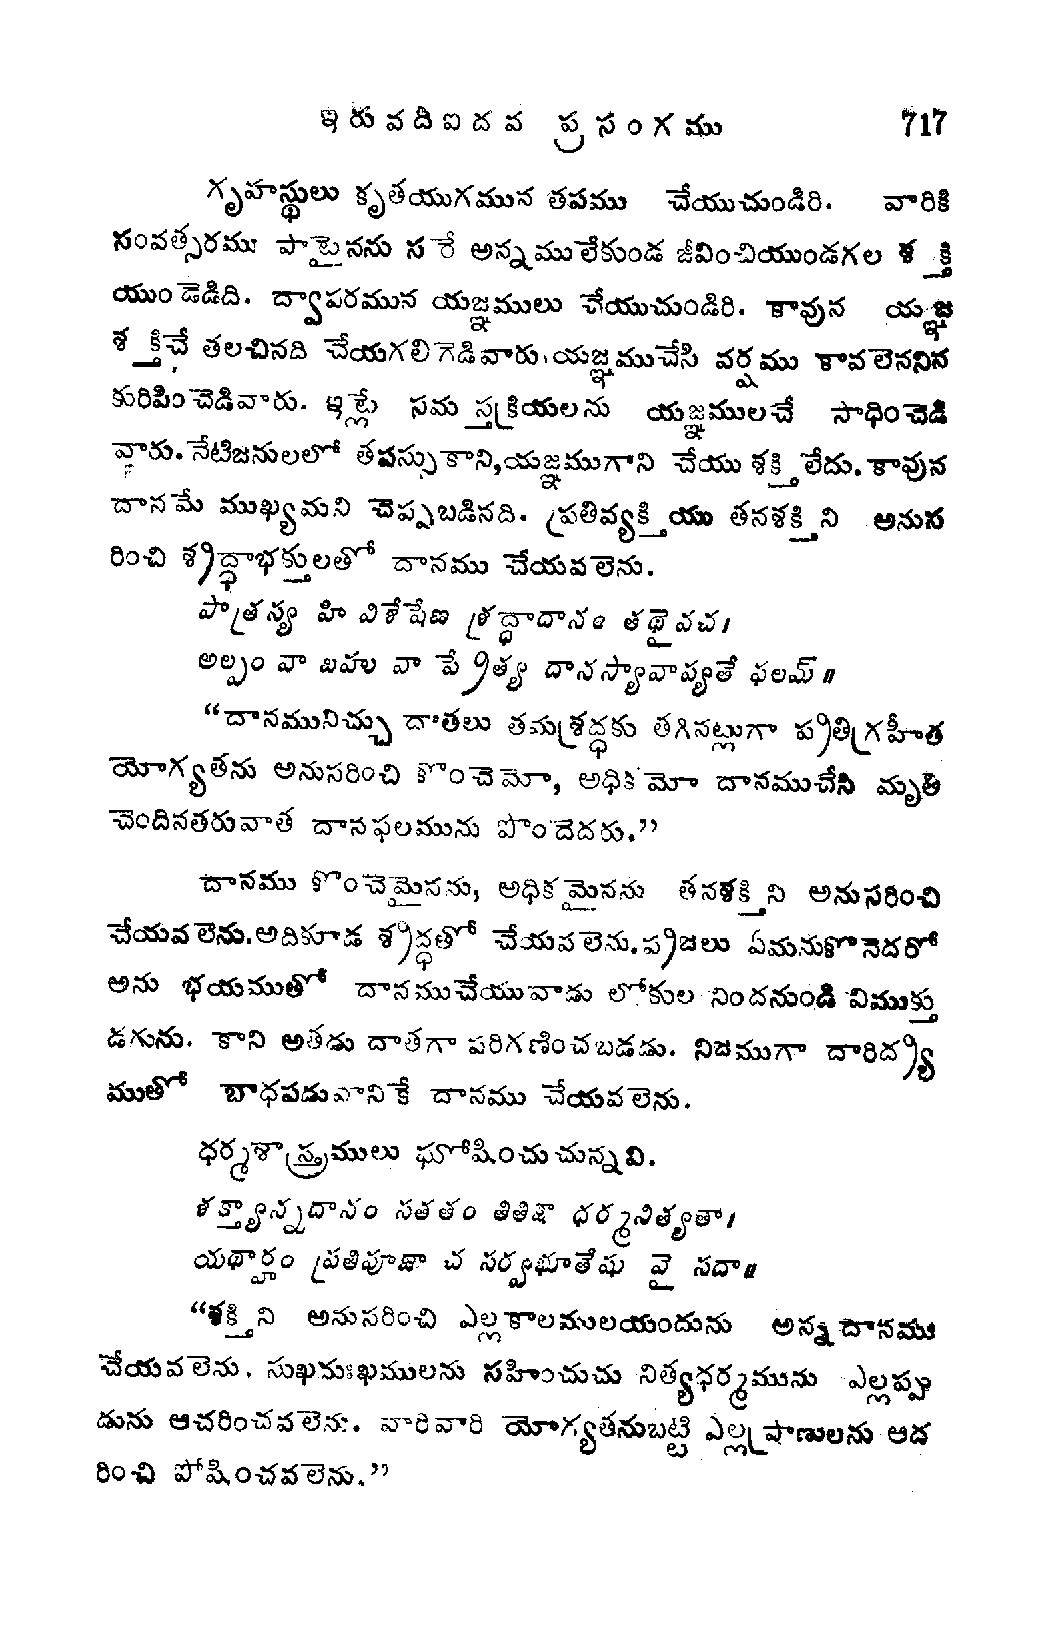 ఇరువదిఐదవ ప్రసంగము 717
గృహస్థులు కృతయుగమున తపము చేయుచుండిరి. వారికి
సంవత్సరము పాటైనను సరే అన్నములేకుండ జీవించియుండగల శక్తి
యుండెడిది. ద్వాపరమున యజ్ఞములు చేయుచుండిరి. కావున యజ్ఞ
శక్తిచే తలచినది చేయగలిగెడివారు.యజ్ఞముచేసి వర్షము కావలెననిన
కురిపించెడివారు. ఇట్లే సమస్తక్రియలను యజ్ఞములచే సాధించెడి
వారు. నేటిజనులలో తపస్సుకాని,యజ్ఞముగాని చేయు శక్తిలేదు. కావున
దానమే ముఖ్యమని చెప్పబడినది. ప్రతివ్యక్తియు తనశక్తిని అనుస
రించి శ్రద్ధాభక్తులతో దానము చేయవలెను.
పాత్రస్య హి విశేషేణ శ్రద్ధాదానం తథైవచ।
అల్పం వా బహు వా ప్రేత్య దానస్యావాప్యతే ఫలమ్॥
“దానమునిచ్చు దాతలు తమశ్రద్ధకు తగినట్లుగా ప్రతిగ్రహీత
యోగ్యతను అనుసరించి కొంచెమో, అధికమో దానముచేసి మృతి
చెందినతరువాత దానఫలమును పొందెదరు.”
దానము కొంచెమైనను, అధికమైనను తనశక్తిని అనుసరించి
చేయవలెను.అదికూడ శ్రద్ధతో చేయవలెను.ప్రజలు ఏమనుకొనెదరో
అను భయముతో దానముచేయువాడు లోకుల నిందనుండి విముక్తు
డగును. కాని అతడు దాతగా పరిగణించబడడు. నిజముగా దారిద్ర్య
ముతో బాధపడువానికే దానము చేయవలెను.
ధర్మశాస్త్రములు ఘోషించుచున్నవి.
శక్త్యాన్నదానం సతతం తితిక్షా ధర్మనిత్యతా।
యథార్హం ప్రతిపూజా చ సర్వభూతేషు వై సదా॥
“శక్తిని అనుసరించి ఎల్లకాలములయందును అన్నదానము
చేయవలెను. సుఖదుఃఖములను సహించుచు నిత్యధర్మమును ఎల్లప్పు
డును ఆచరించవలెను. వారివారి యోగ్యతనుబట్టి ఎల్లప్రాణులను ఆద
రించి పోషించవలెను.”